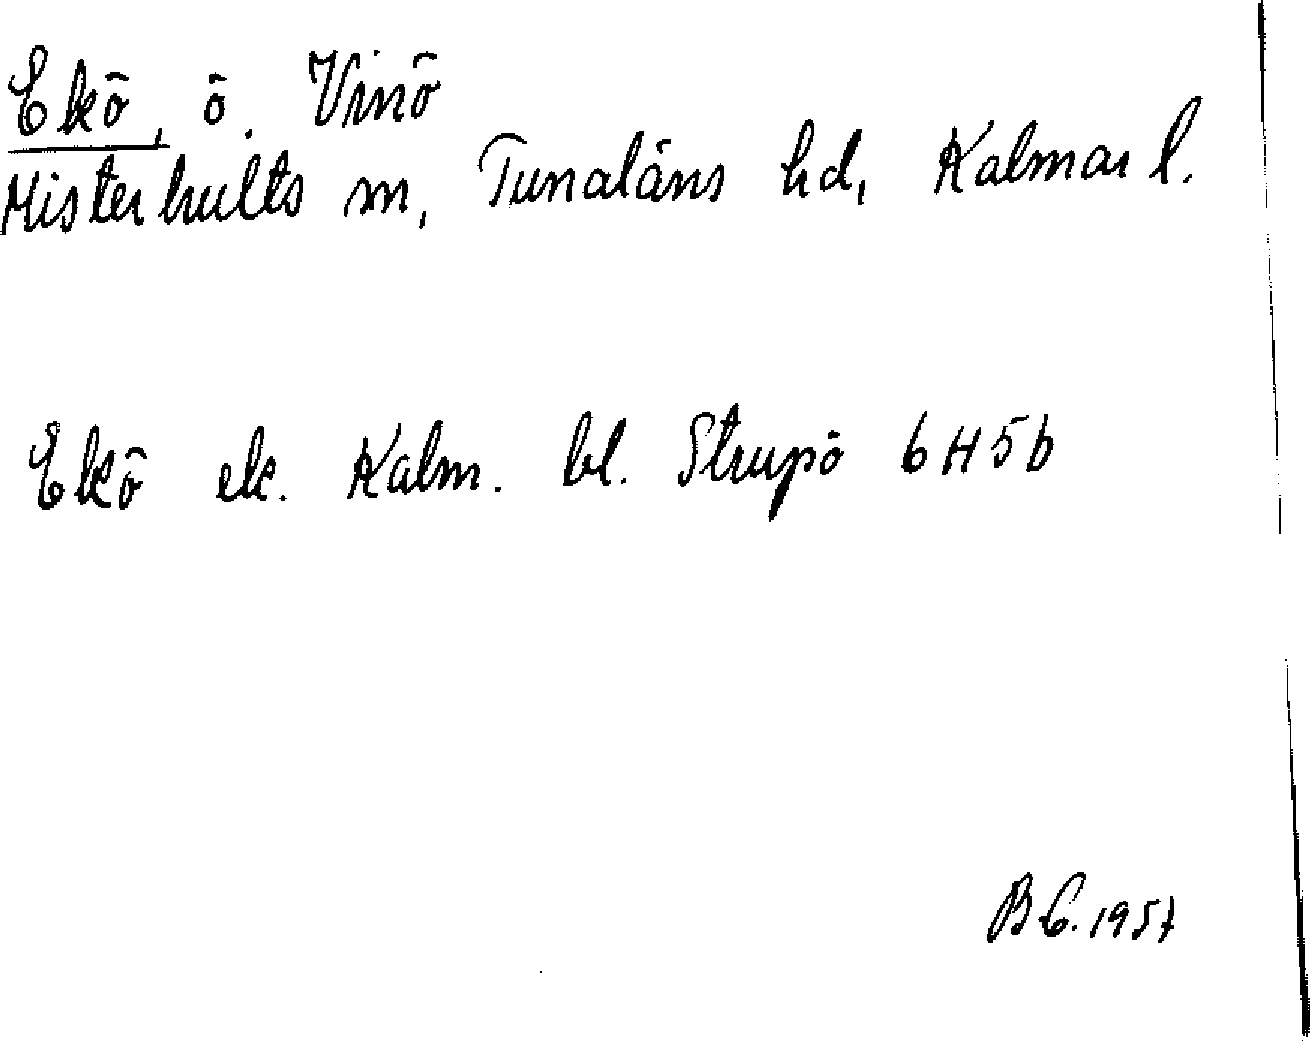 Ekö, ö. Vinö
Misterhults sn, Tunaläns hd, Kalmar l.
Ekö ek. Kalm. bl. Strupö 6H5b
B E. 1957